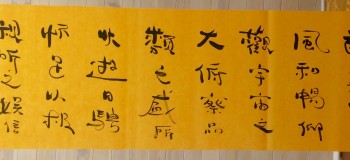 風和暢仰
觀宇宙之
大俯察品
類之盛所
以遊目騁
怀足以極
視听之娛信